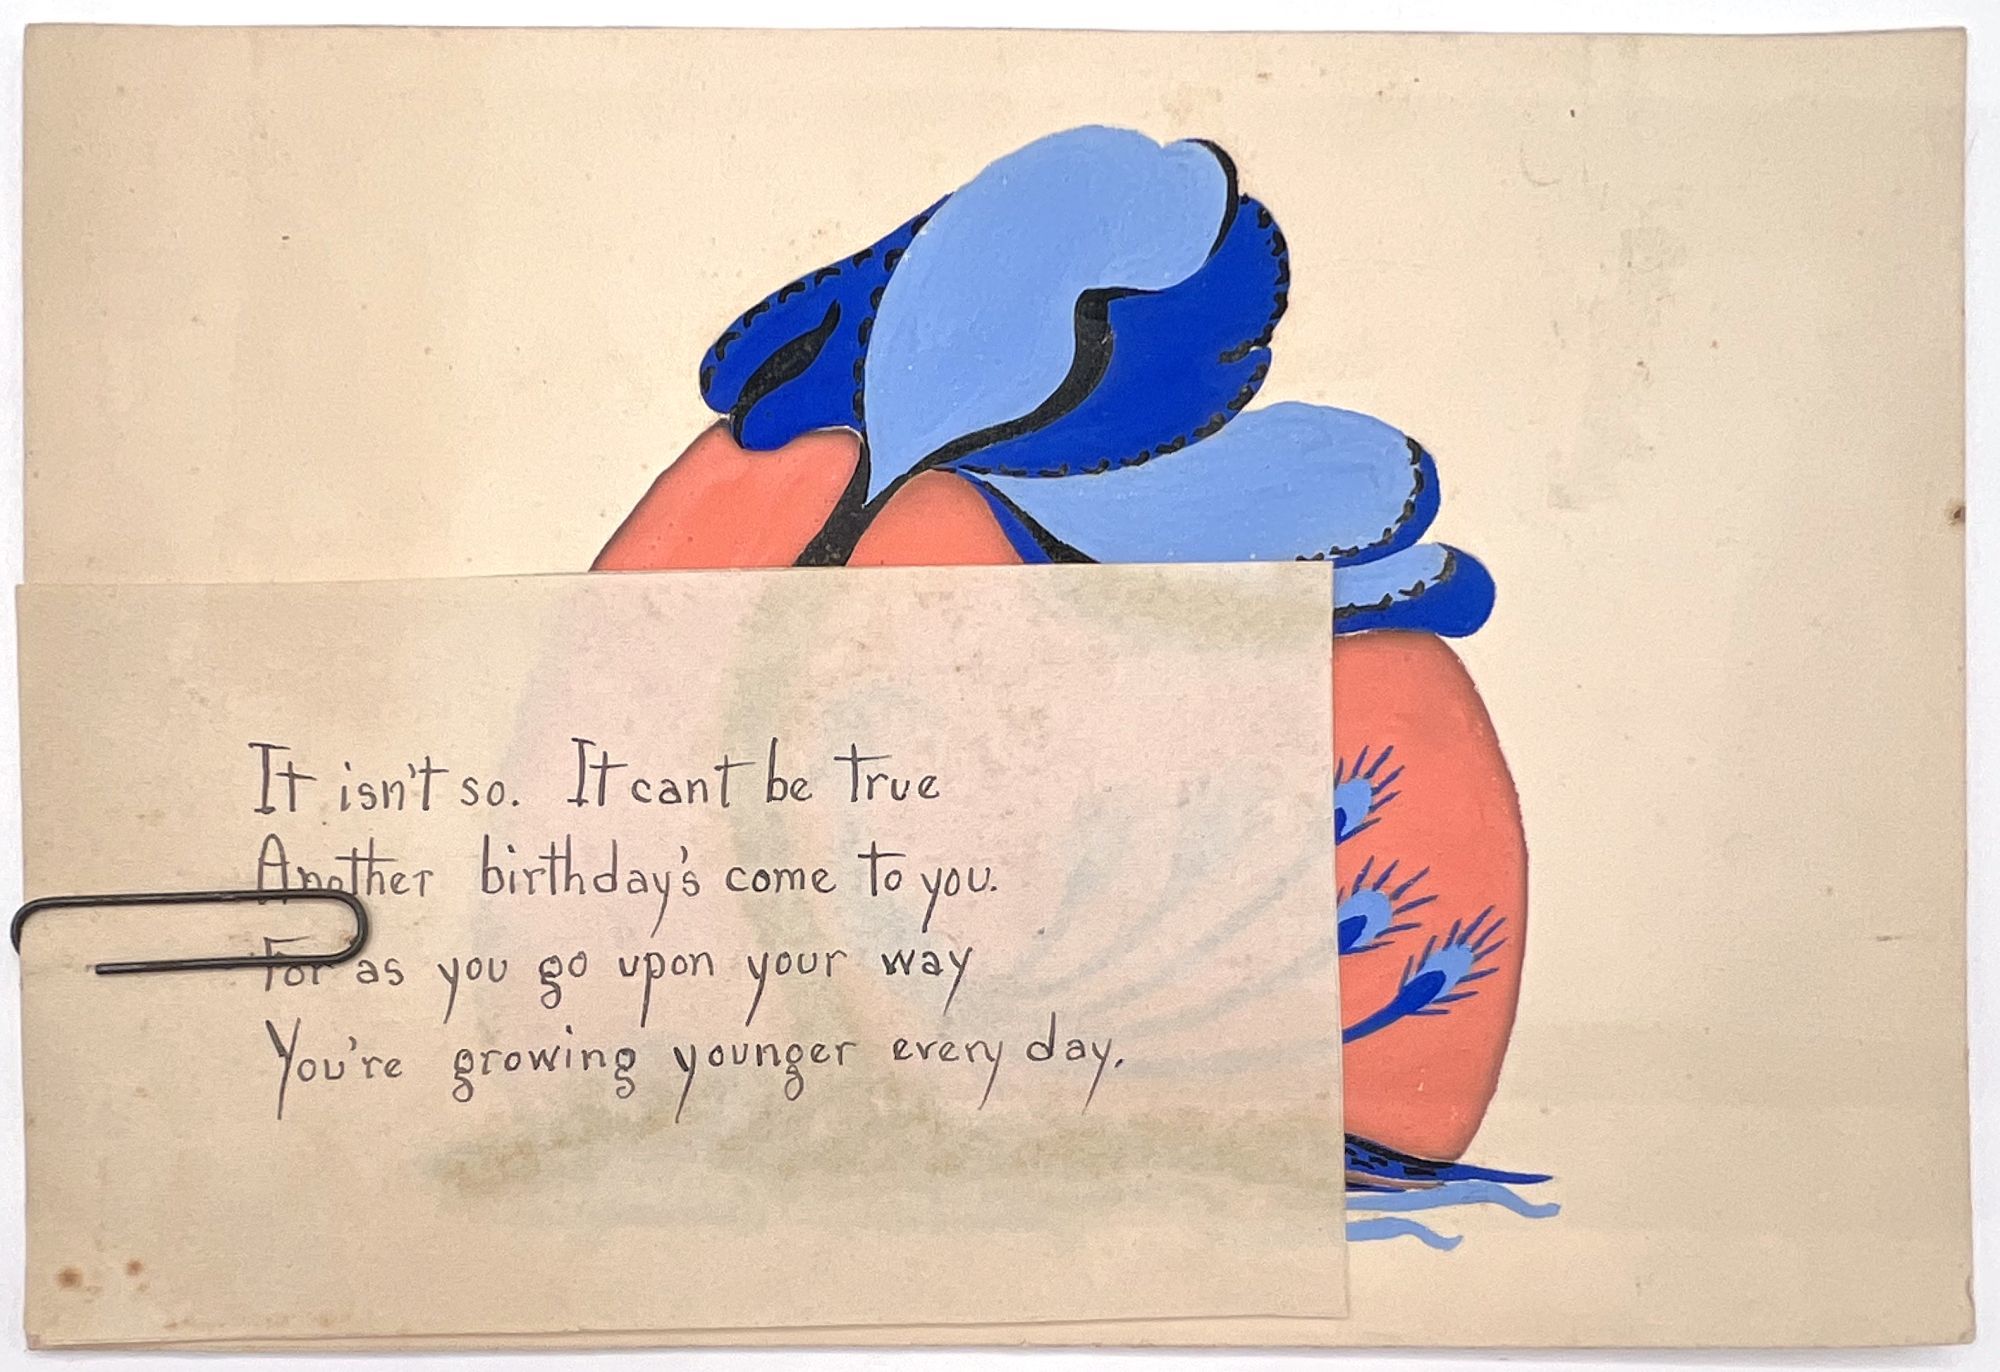 It isn't so. It cant be true
Another birthday's come to you.
For as you go upon your way
You're growing younger every day.